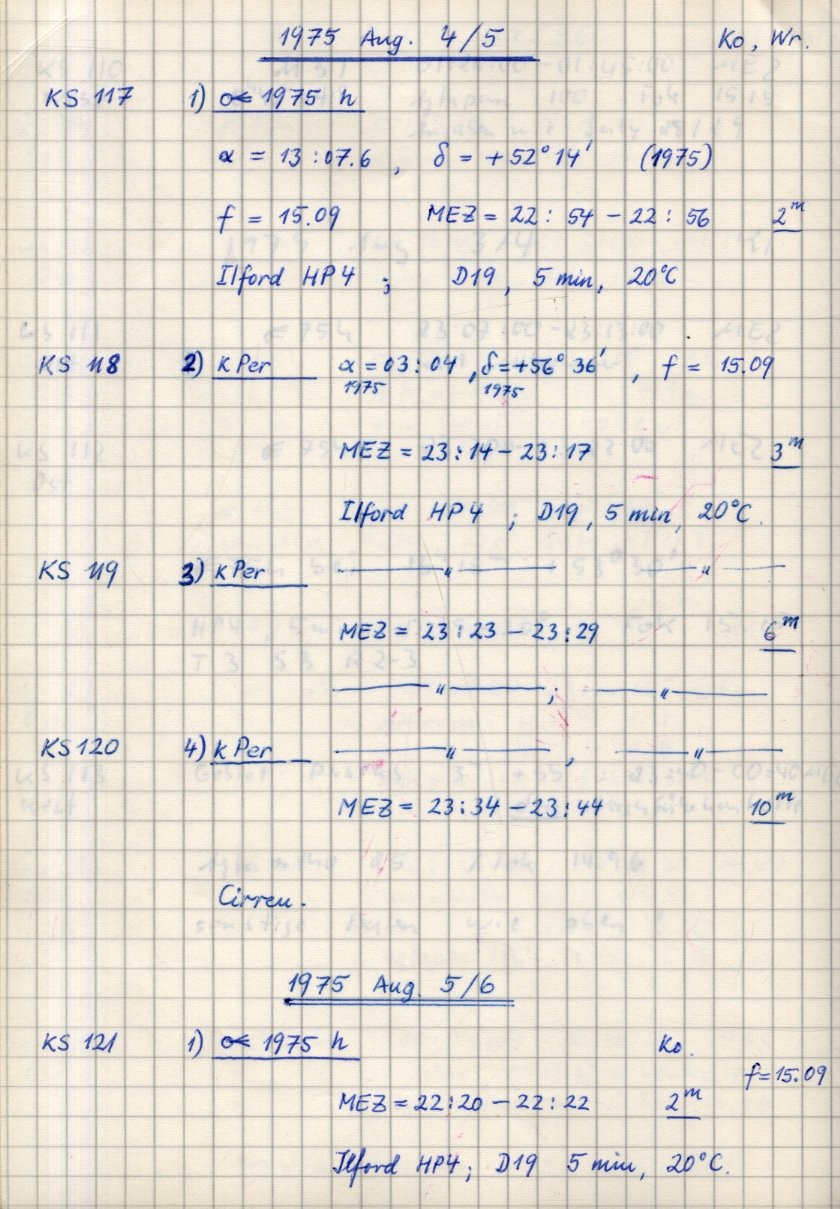 1975 Aug. 4/5 Ko, Wr.
KS 117 1) ☄ 1975 h
α = 13:07.6 , δ = +52° 14' (1975)
f = 15.09 MEZ = 22:54 – 22:56 2ᵐ
Ilford HP4 ; D19, 5 min, 20°C
KS 118 2) k Per α = 03:04 , δ = +56° 36' , f = 15.09
1975 1975
MEZ = 23:14 – 23:17 3ᵐ
Ilford HP4 ; D19, 5 min, 20°C.
KS 119 3) k Per —〃— —〃—
MEZ = 23:23 – 23:29 6ᵐ
—〃— ; —〃—
KS 120 4) k Per —〃— , —〃—
MEZ = 23:34 – 23:44 10ᵐ
Cirren.
1975 Aug. 5/6
KS 121 1) ☄ 1975 h Ko.
f = 15.09
MEZ = 22:20 – 22:22 2ᵐ
Ilford HP4; D19 5 min, 20°C.